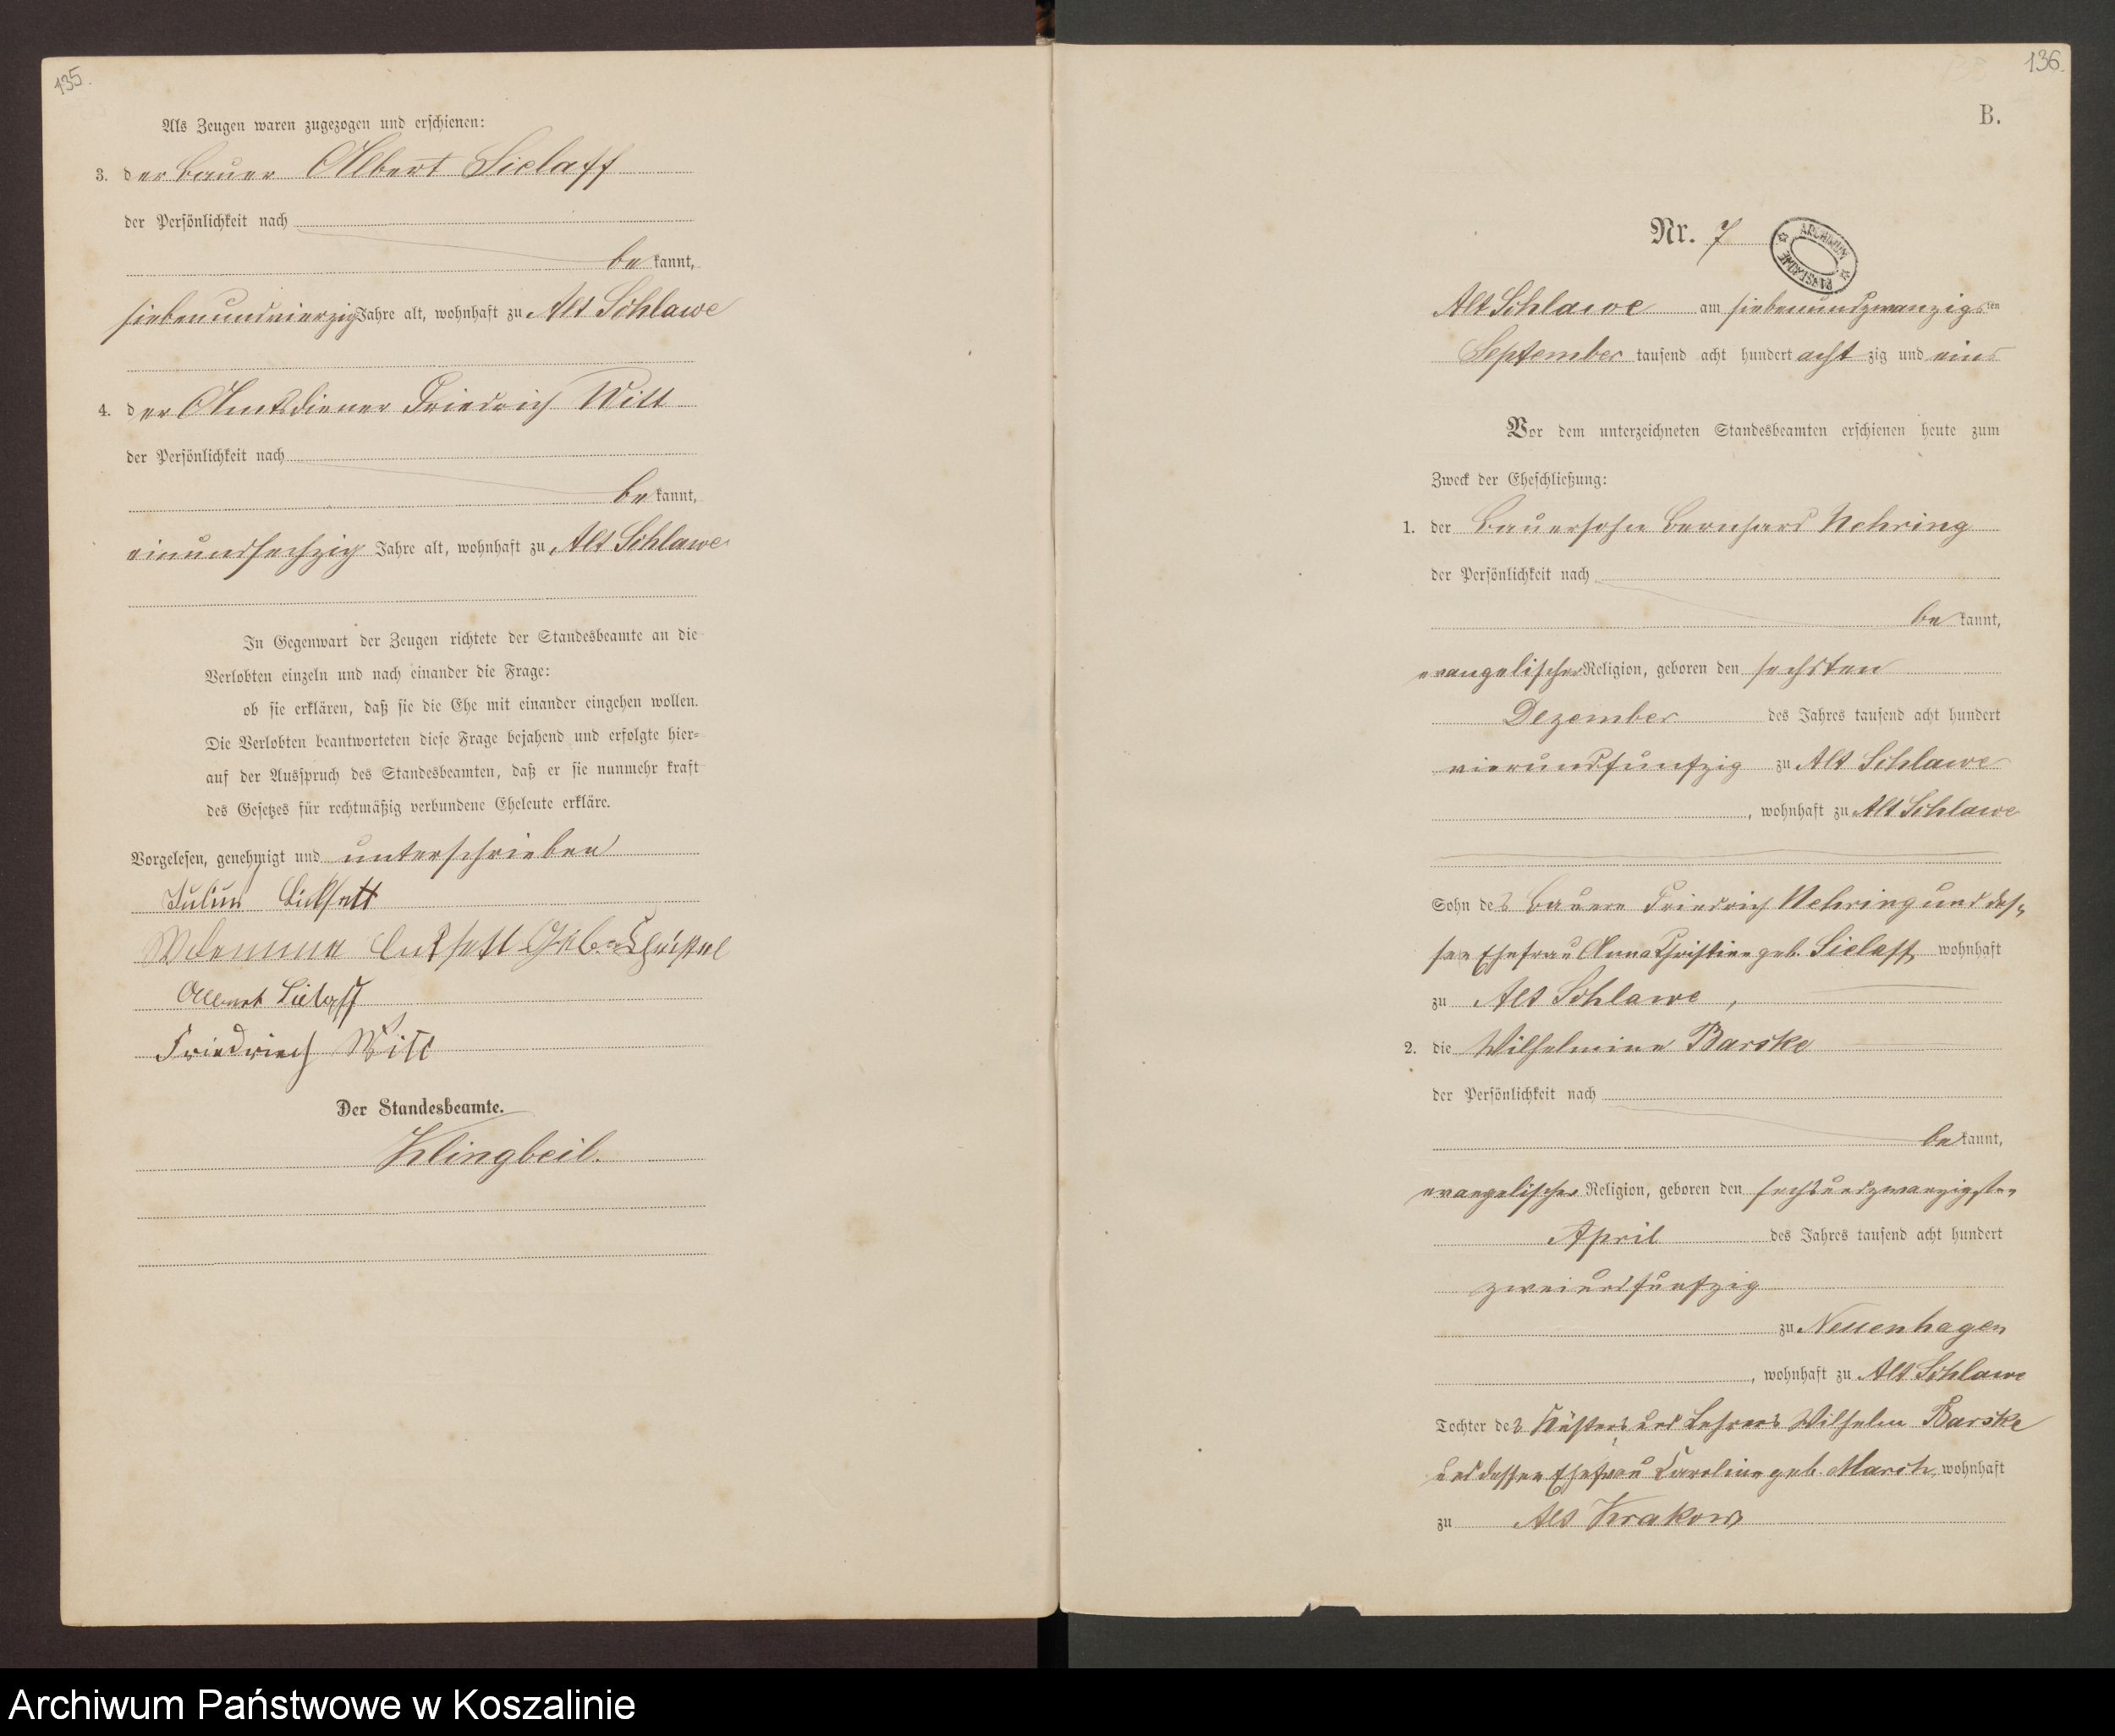 135.
Als Zeugen waren zugezogen und erschienen:
3. der Bauer Albert Sielaff
der Persönlichkeit nach
be kannt,
siebenundvierzig Jahre alt, wohnhaft zu Alt Schlawe
4. der Amtsdiener Friedrich Witt
der Persönlichkeit nach
be kannt,
einundsechzig Jahre alt, wohnhaft zu Alt Schlawe
In Gegenwart der Zeugen richtete der Standesbeamte an die
Verlobten einzeln und nach einander die Frage:
ob sie erklären, daß sie die Ehe mit einander eingehen wollen.
Die Verlobten beantworteten diese Frage bejahend und erfolgte hier-
auf der Ausspruch des Standesbeamten, daß er sie nunmehr kraft
des Gesetzes für rechtmäßig verbundene Eheleute erkläre.
Vorgelesen, genehmigt und unterschrieben
Julius
Albert Sielaff
Friedriech Witt
Der Standesbeamte.
Klingbeil.
136.
B.
Nr. 7
ARCHIWUM PAŃSTWOWE
Alt Schlawe am siebenundzwanzigsten
September tausend acht hundert achtzig und eins
Vor dem unterzeichneten Standesbeamten erschienen heute zum
Zweck der Eheschließung:
1. der Bauersohn Bernhard Nehring
der Persönlichkeit nach
be kannt,
evangelischer Religion, geboren den sechsten
Dezember des Jahres tausend acht hundert
vierundfunfzig zu Alt Schlawe
, wohnhaft zu Alt Schlawe
Sohn des Bauern Friedrich Nehring und des-
sen Ehefrau Anna Christine geb. Sielaff, wohnhaft
zu Alt Schlawe,
2. die Wilhelmine Barske
der Persönlichkeit nach
be kannt,
evangelischer Religion, geboren den sechsundzwanzigsten
April des Jahres tausend acht hundert
zweiundfunfzig
zu Neuenhagen
, wohnhaft zu Alt Schlawe
Tochter des Küsters und Lehrers Wilhelm Barske
und dessen Ehefrau Caroline geb. March, wohnhaft
zu Alt Krakow
Archiwum Państwowe w Koszalinie